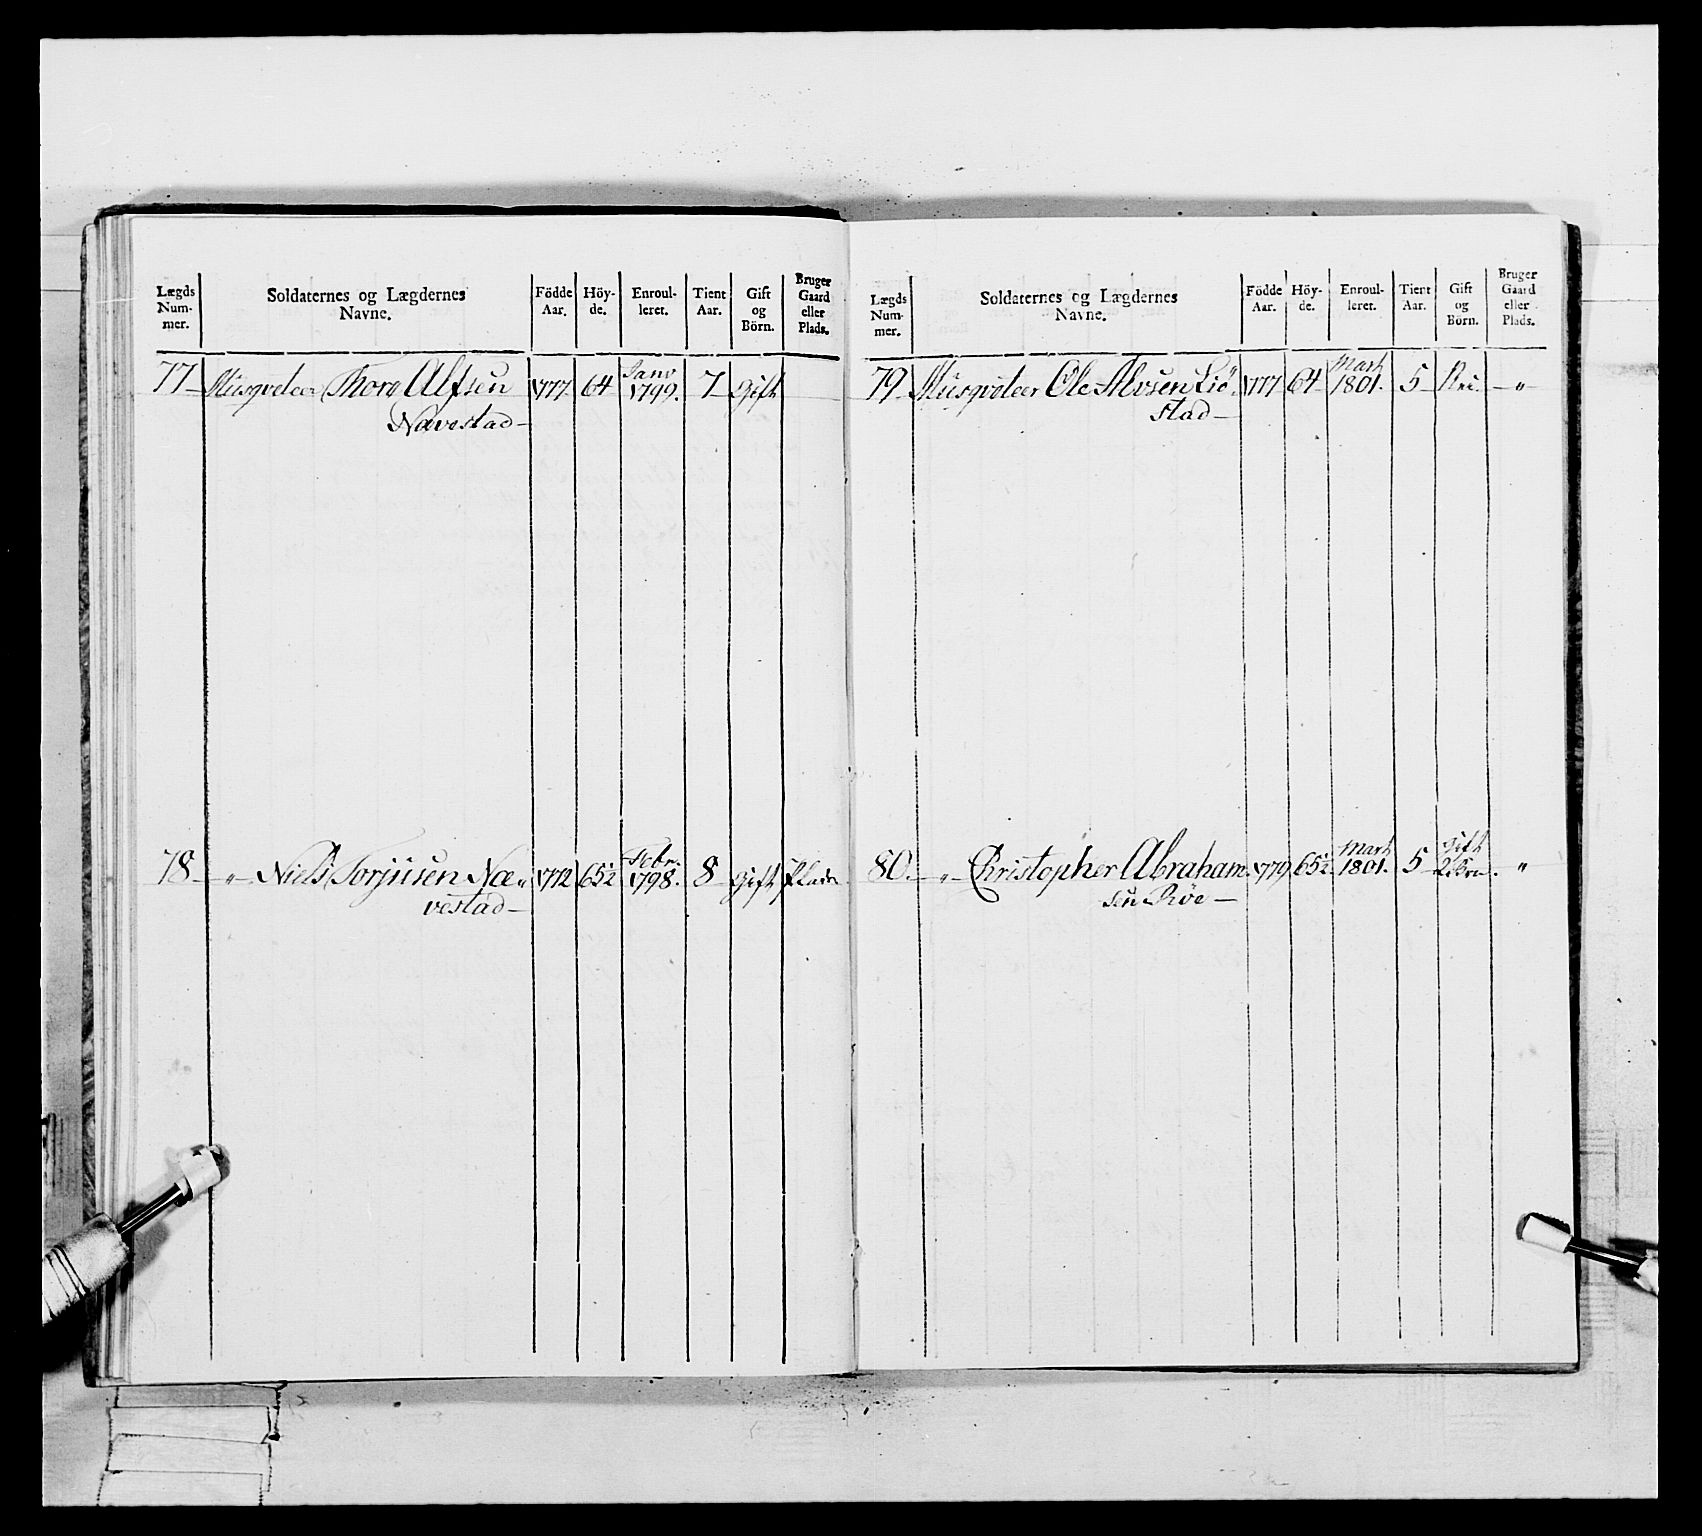 Lægds Num- mer. | Soldaternes og Lægdernes Navne. | Födde Aar. | Höy- de. | Enroul- leret. | Tient Aar. | Gift og Börn. | Bruger Gaard eller Plads.
77 Musqveteer Thore Alfsen 1777 64 Janv 1799. 7 Gift
Navestad
78 " Niels Torjusen Næ" 1772 65½ Febr. 1798. 8 Gift Plads
vestad
Lægds Num- mer. | Soldaternes og Lægdernes Navne. | Födde Aar. | Höy- de. | Enroul- leret. | Tient Aar. | Gift og Börn. | Bruger Gaard eller Plads.
79 Musqveteer Ole Alvsen Liö 1777 64 Mart 1801. 5 "
stad
80. " Christopher Abraham 1779 65½ Mart 1801. 5 Gift "
sen Röe